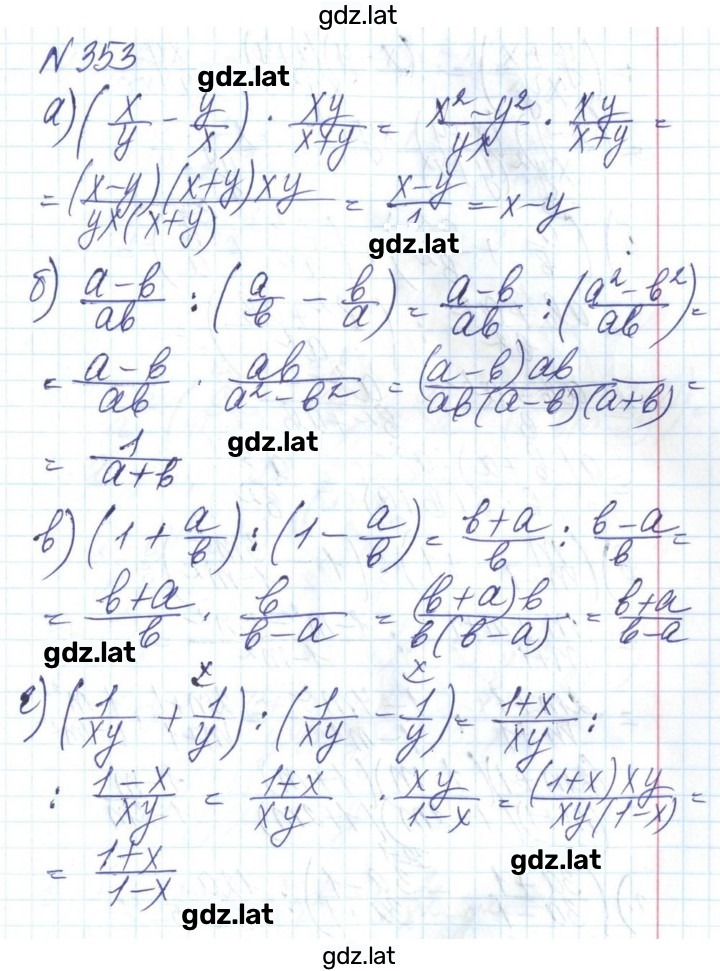 gdz.lat
N 353
gdz.lat
а) (x/y - y/x) · xy/(x+y) = (x² - y²)/yx · xy/(x+y) =
= (x-y)(x+y)xy / yx(x+y) = (x-y)/1 = x-y
gdz.lat
б) (a-b)/ab : (a/b - b/a) = (a-b)/ab : ((a² - b²)/ab) =
= (a-b)/ab · ab/(a² - b²) = (a-b)ab / ab(a-b)(a+b) =
= 1/(a+b)
gdz.lat
в) (1 + a/b) : (1 - a/b) = (b+a)/b : (b-a)/b =
= (b+a)/b · b/(b-a) = (b+a)b / b(b-a) = (b+a)/(b-a)
gdz.lat
x x
г) (1/xy + 1/y) : (1/xy - 1/y) = (1+x)/xy :
: (1-x)/xy = (1+x)/xy · xy/(1-x) = (1+x)xy / xy(1-x) =
= (1+x)/(1-x)
gdz.lat
gdz.lat
gdz.lat